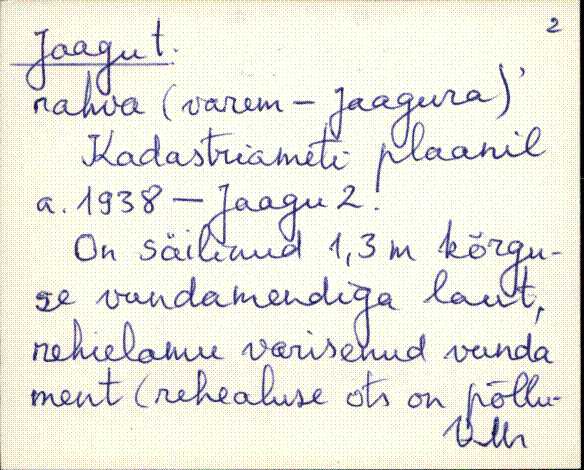 2
Jaagu t.
rahva (varem – Jaagura)
Kadastriameti plaanil
a. 1938 – Jaagu 2.
On säilinud 1,3 m kõrgu-
se vundamendiga laut,
rehielamu varisenud vunda
ment (rehealuse ots on põllu-